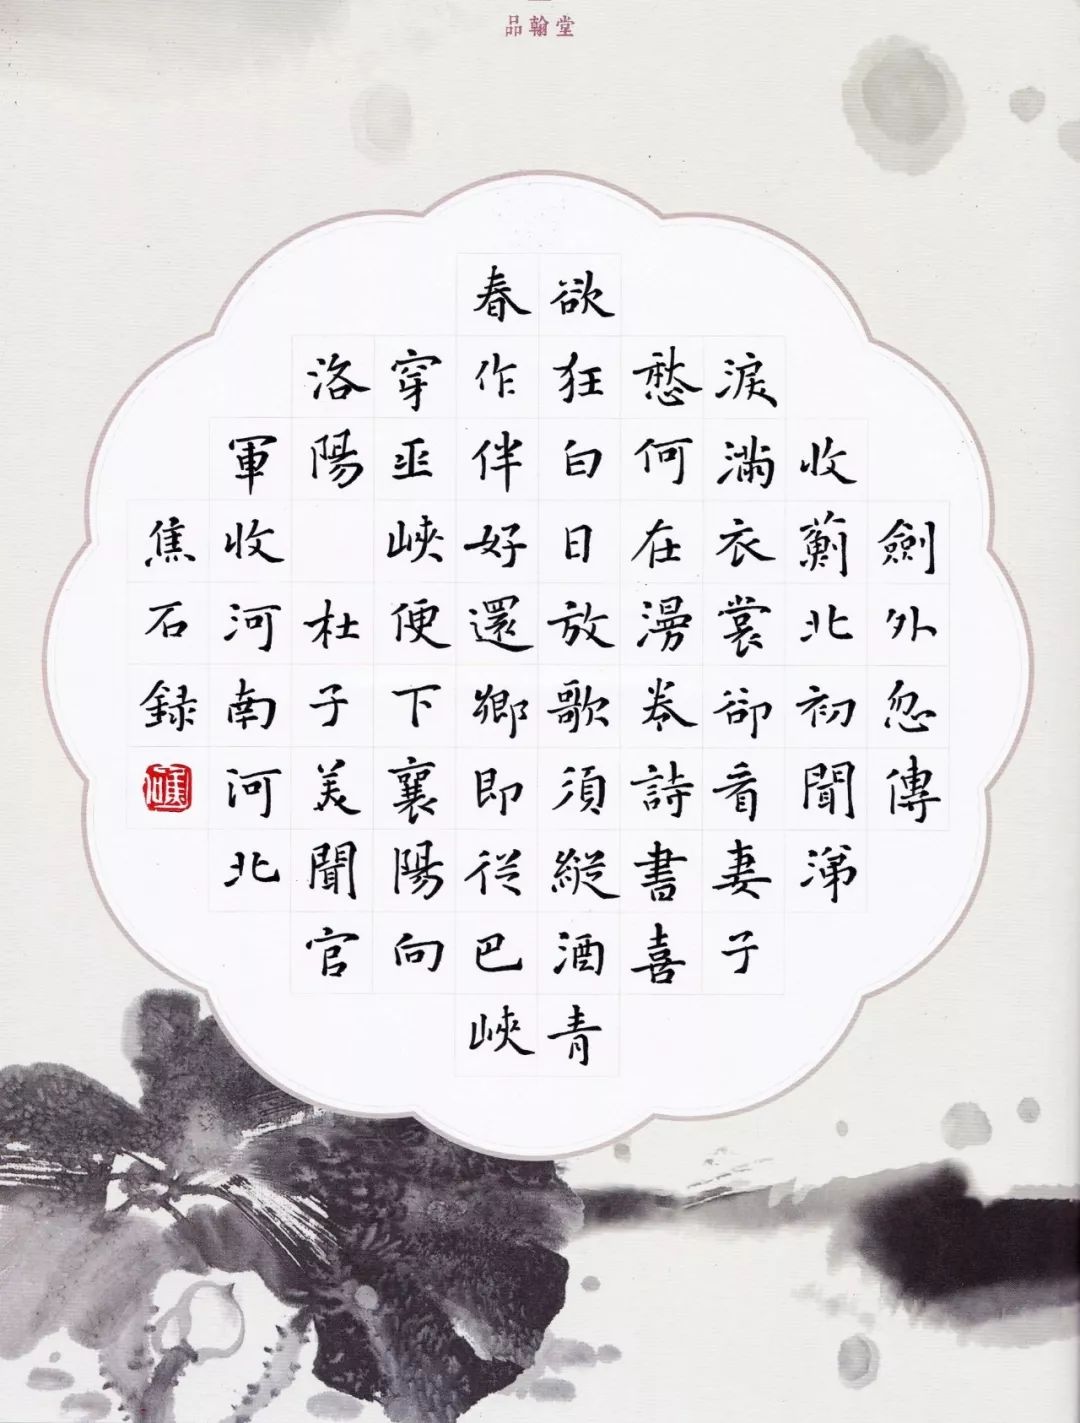 品翰堂
劍外忽傳
收薊北初聞涕
淚滿衣裳卻看妻子
愁何在漫卷詩書喜
欲狂白日放歌須縱酒青
春作伴好還鄉即從巴峽
穿巫峽便下襄陽向
洛陽 杜子美聞官
軍收河南河北
焦石録
焦石